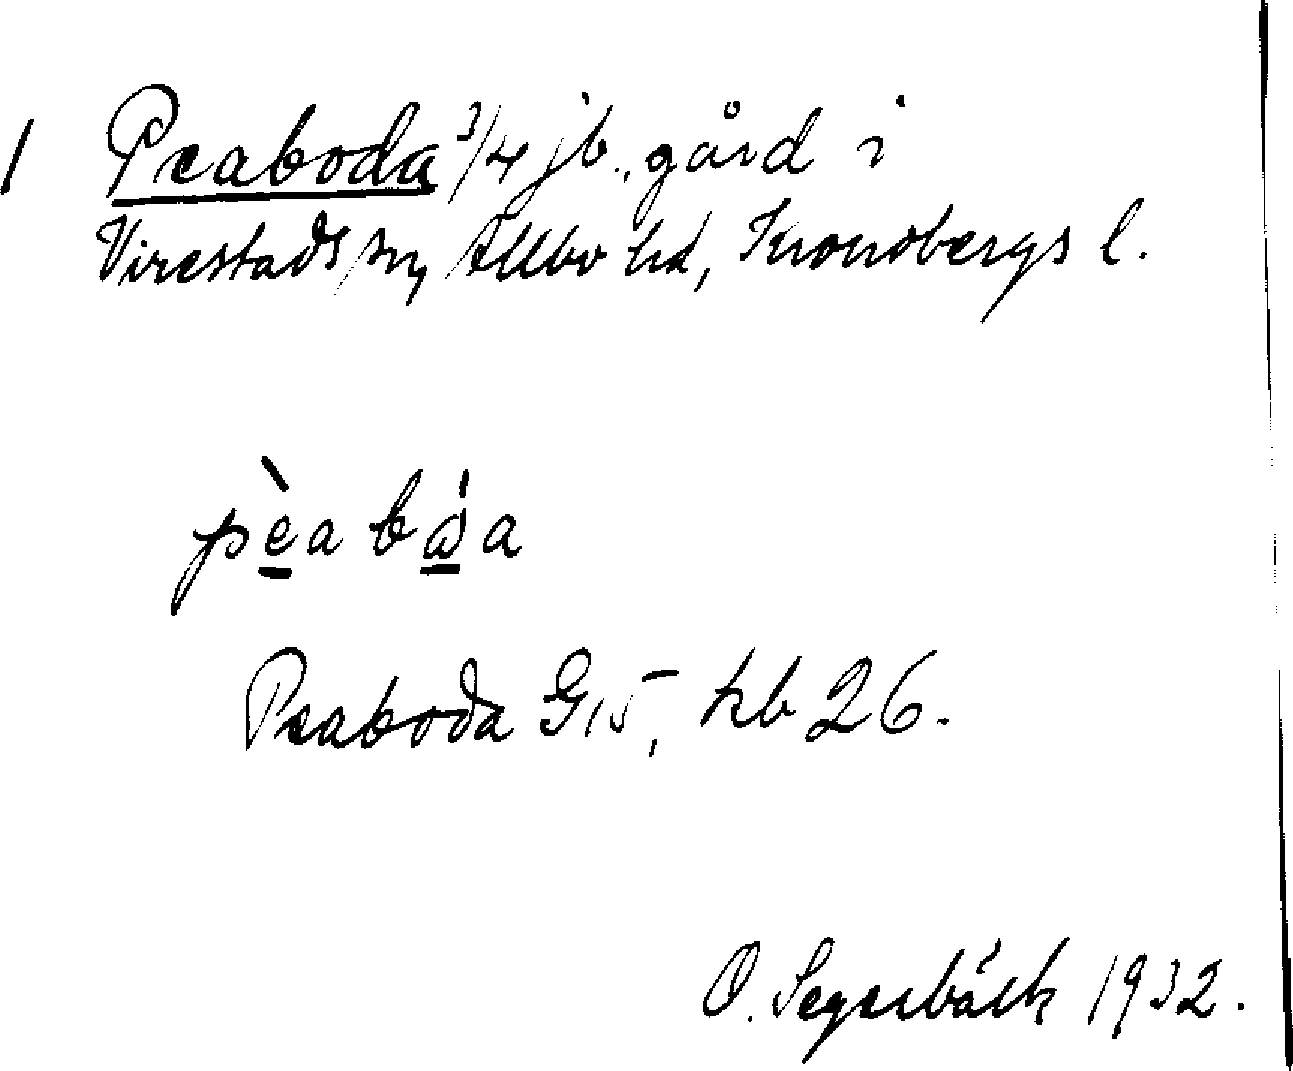 1 Peaboda 3/4 jb., gård i
Virestads sn, Allbo hd, Kronobergs l.
pèabáa
Peaboda G 15, hb 26.
O. Segerbäck 1932.